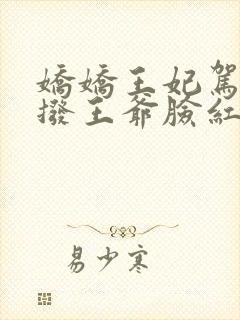 嬌嬌王妃駕
撥王爺臉紅
易少寒